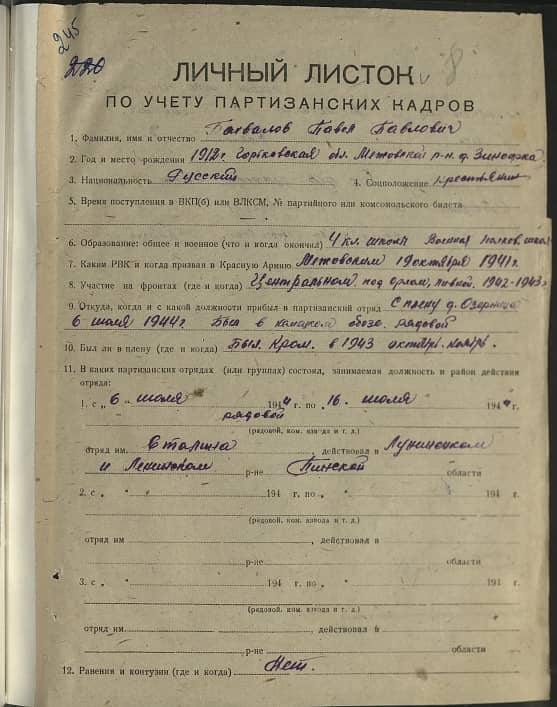 245
220
ЛИЧНЫЙ ЛИСТОК
ПО УЧЕТУ ПАРТИЗАНСКИХ КАДРОВ
1. Фамилия, имя и отчество Похвалов Павел Павлович
2. Год и место рождения 1912 г. Горьковская обл. р-н. д.
3. Национальность Русский 4. Соцположение крестьянин
5. Время поступления в ВКП(б) или ВЛКСМ, № партийного или комсомольского билета
6. Образование: общее и военное (что и когда окончил) 4 кл. школы Военная
7. Каким РВК и когда призван в Красную Армию 19 октября 1941 г.
8. Участие на фронтах (где и когда) Центральном под 1942-1943 г.
9. Откуда, когда и с какой должности прибыл в партизанский отряд С плену д.
6 июля 1944 г. Был в рядовой
10. Был ли в плену (где и когда) Был. в 1943
11. В каких партизанских отрядах (или группах) состоял, занимаемая должность и район действия
отряда:
1. с „ 6 “ июля 1944 г. по „ 16 “ июля 1944 г.
рядовой
(рядовой, ком. взвода и т. д.)
отряд им. Сталина действовал в Лунинецком
и Ленинском р-не Пинской области
2. с „ “ 194 г. по „ “ 194 г.
(рядовой, ком. взвода и т. д.)
отряд им , действовал в
р-не области
3. с „ “ 194 г. по „ “ 194 г.
(рядовой, ком. взвода и т. д.)
отряд им. , действовал в
р-не области
12. Ранения и контузии (где и когда) Нет.